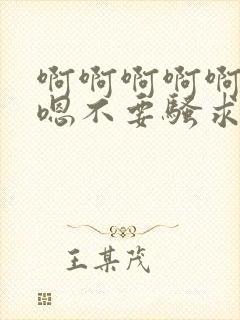 啊啊啊啊啊
嗯不要骚求
王某茂